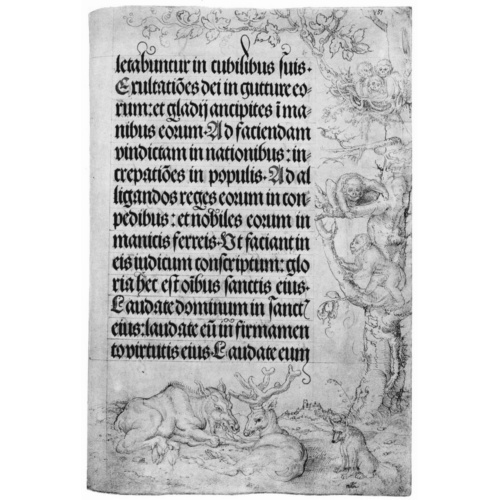 letabuntur in cubilibus suis.
Exultatiões dei in gutture eo-
rum: et gladij ancipites ī ma-
nibus eorum. Ad faciendam
vindictam in nationibus: in-
crepatiões in populis. Ad al
ligandos reges eorum in com-
pedibus: et nobiles eorum in
manicis ferreis. Ut faciant in
eis iudicium conscriptum: glo
ria hec est oībus sanctis eius.
Laudate dominum in sanct
eius: laudate eū in firmamen
to virtutis eius. Laudate eum